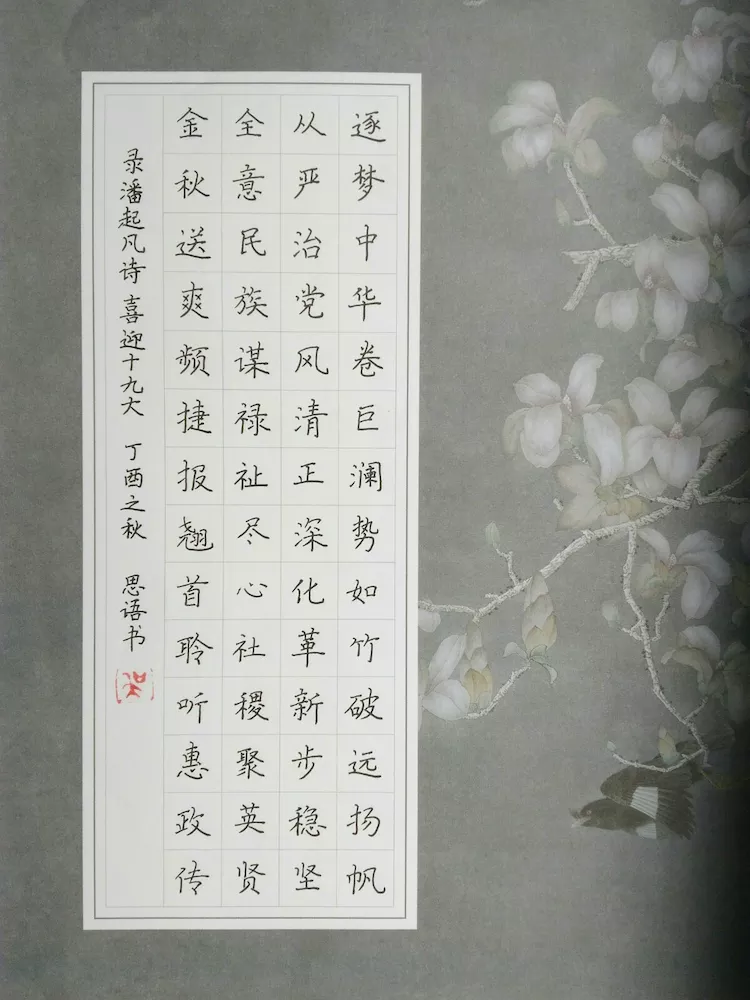 逐梦中华卷巨澜势如竹破远扬帆
从严治党风清正深化革新步稳坚
全意民族谋禄祉尽心社稷聚英贤
金秋送爽频捷报翘首聆听惠政传
录潘起凡诗 喜迎十九大 丁酉之秋 思语书